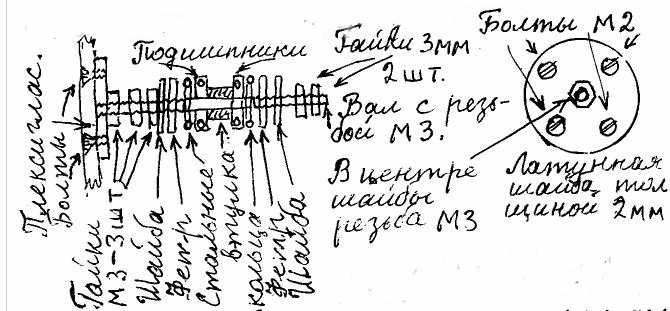 Подшипники
Гайки 3мм
2шт.
Вал с резь-
бой М3.
Болты М2
В центре
шайбы
резьба М3
Латунная
шайба тол
щиной 2мм
Плексиглас.
Болты
Гайки
М3-3шт
Шайба
Фетр
Стальные
втулка
кольца
Фетр
Шайба